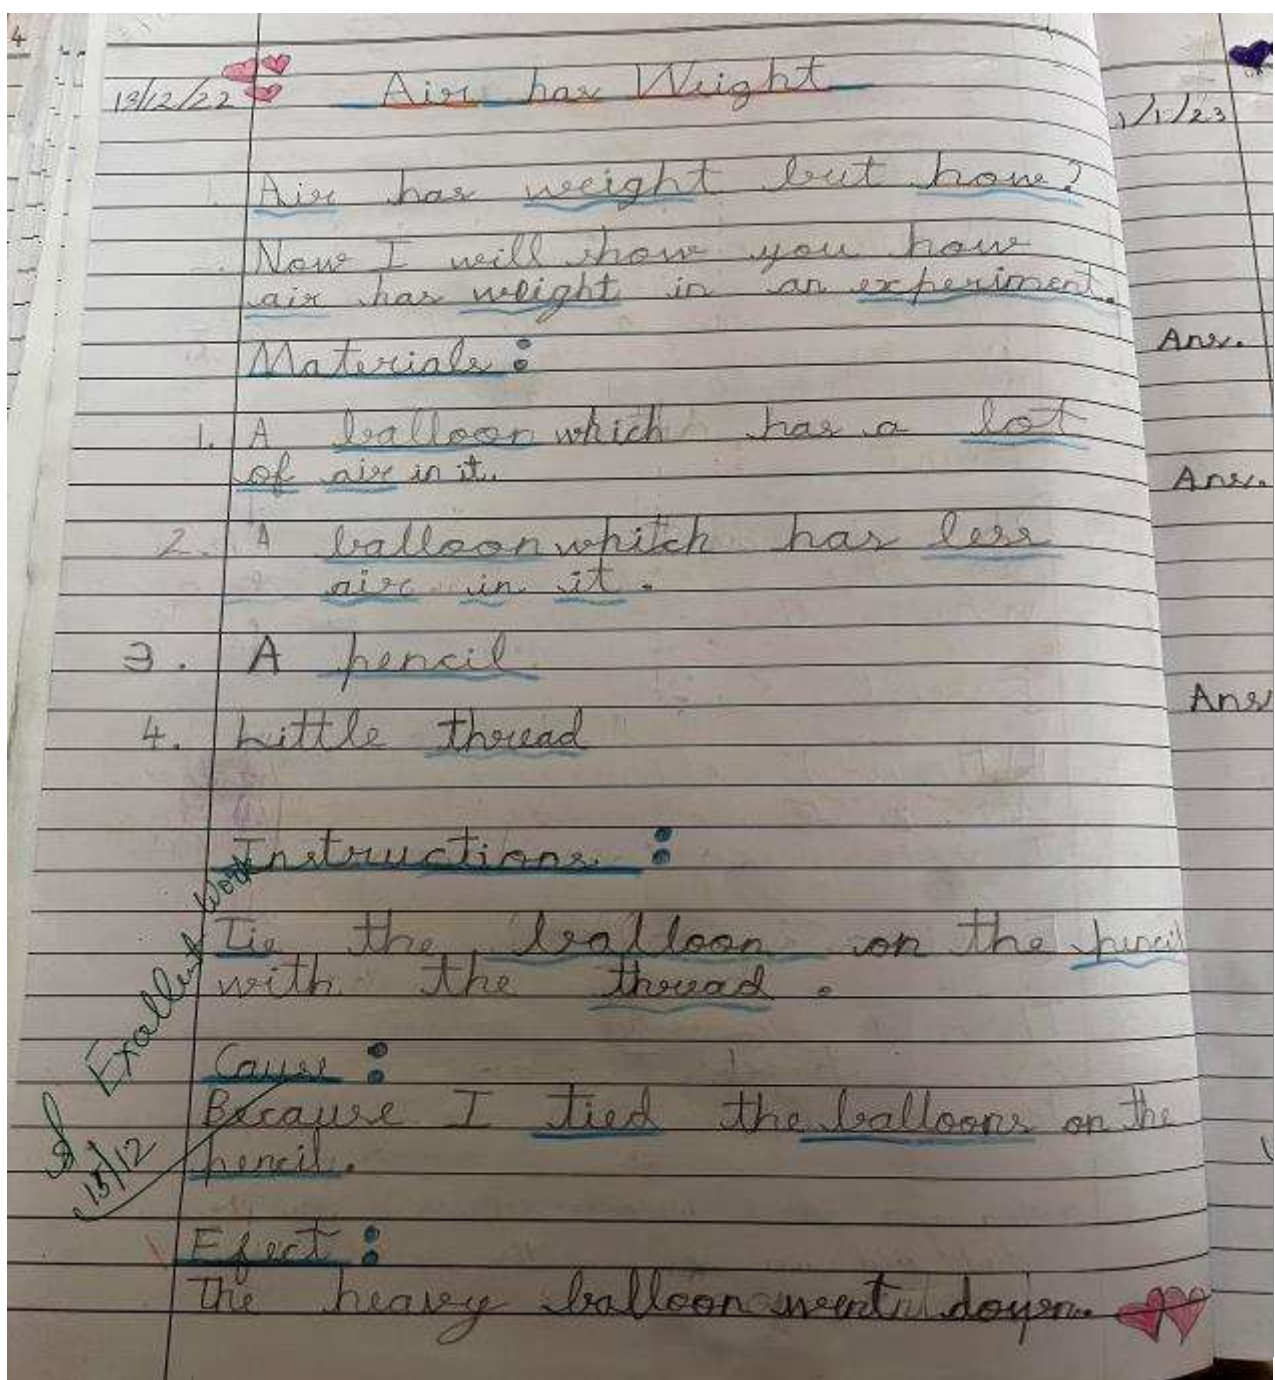 4
13/12/22
Air has Weight
Air has weight but how?
Now I will show you how
air has weight in an experiment.
Materials:
1. A balloon which has a lot
of air in it.
2. A balloon whitch has less
air in it.
3. A pencil
4. Little thread
Instructions:
Tie the balloon on the pencil
with the thread.
Cause:
Because I tied the balloons on the
pencil.
Efect:
The heavy balloon went down.
Excellent Work
15/12
1/1/23
Ans.
Ans.
Ans